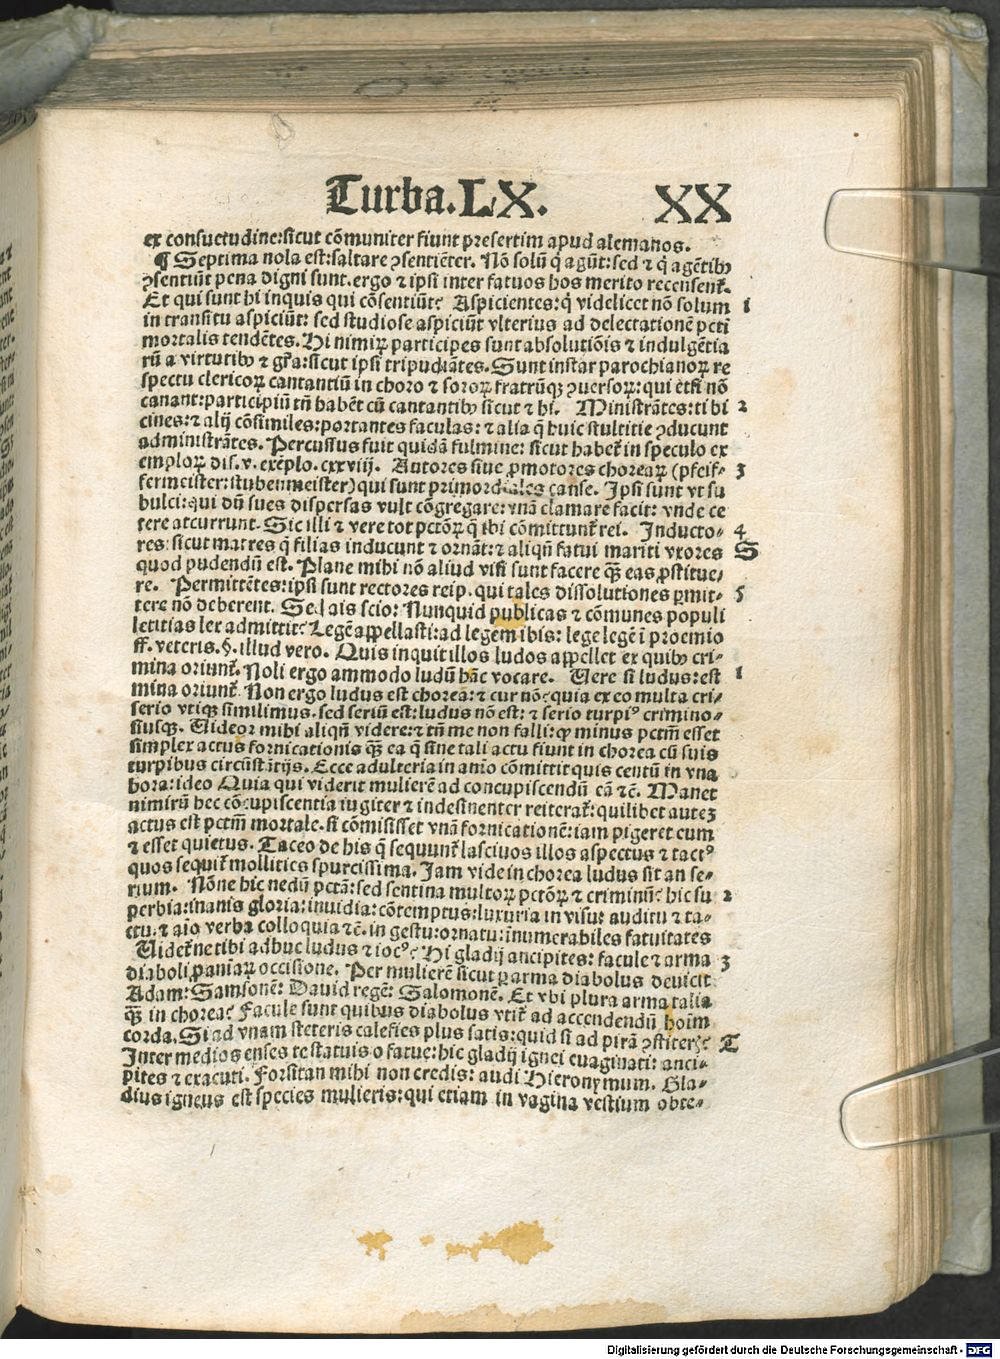 Turba.LX. XX
ex consuetudine:sicut cõmuniter fiunt presertim apud alemanos.
¶ Septima nola est:saltare ꝯsentiẽter. Nõ solũ q̃ agũt:sed ⁊ q̃ agẽtibꝰ
ꝯsentiũt pena digni sunt.ergo ⁊ ipsi inter fatuos hos merito recensent̃.
Et qui sunt hi inquis qui cõsentiũt? Aspicientes:q̃ videlicet nõ solum 1
in transitu aspiciũt: sed studiose aspiciũt vlterius ad delectationẽ pcti
mortalis tendẽtes.Hi nimiꝝ participes sunt absolutiõis ⁊ indulgẽtia
rũ a virtutibꝰ ⁊ gr̃a:sicut ipsi tripudiãtes.Sunt instar parochianoꝝ re
spectu clericoꝝ cantantiũ in choro ⁊ soroꝝ fratrũqꝫ ꝯuersoꝝ:qui etsi nõ
canant:participiũ tñ habẽt cũ cantantibꝰ sicut ⁊ hi. Ministrãtes:tibi 2
cines:⁊ alij cõsimiles:portantes faculas:⁊ alia q̃ huic stultitie ꝯducunt
administrãtes. Percussus fuit quidã fulmine: sicut habet̃ in speculo ex
emploꝝ dis.v.exẽplo.cxxviij. Autores siue ꝓmotores choreaꝝ (pfeif- 3
fermeister:stubenmeister) qui sunt primordiales cause. Ipsi sunt vt su
bulci:qui dũ sues dispersas vult cõgregare:vnã clamare facit: vnde ce
tere accurrunt. Sic illi ⁊ vere tot pctõꝝ q̃ ibi cõmittunt̃ rei. Inducto- 4
res:sicut matres q̃ filias inducunt ⁊ ornãt:⁊ aliqñ fatui mariti vxores S
quod pudendũ est. Plane mihi nõ aliud visi sunt facere q̃ꝫ eas ꝓstitue-
re. Permittẽtes:ipsi sunt rectores reip. qui tales dissolutiones ꝑmit- 5
tere nõ deberent. Sed ais scio: Nunquid publicas ⁊ cõmunes populi
letitias lex admittit? Legẽ appellasti:ad legem ibis: lege legẽ ī proemio
ff. veteris.§.illud vero. Quis inquit illos ludos appellet ex quibꝰ cri-
mina oriunt̃. Noli ergo ammodo ludũ hãc vocare. Vere si ludus:est 1
mina oriunt̃. Non ergo ludus est chorea:⁊ cur nõ?quia ex eo multa cri-
serio vtiqꝫ simillimus.sed seriũ est:ludus nõ est:⁊ serio turpiꝰ crimino-
siusqꝫ. Videor mihi aliqñ videre:⁊ tñ me non falli:ꝙ minus pctm̃ esset
simplex actus fornicationis q̃ꝫ ea q̃ sine tali actu fiunt in chorea cũ suis
turpibus circũstãtijs. Ecce adulteria in anĩo cõmittit quis centũ in vna
hora:ideo Quia qui viderit mulierẽ ad concupiscendũ eã ⁊c̃. Manet
nimirũ hec cõcupiscentia iugiter ⁊ indesinenter reiterat̃:quilibet auteꝫ
actus est pctm̃ mortale.si cõmisisset vnã fornicationẽ:iam pigeret eum
⁊ esset quietus. Taceo de his q̃ sequunt̃ lasciuos illos aspectus ⁊ tactꝰ
quos sequit̃ mollities spurcissima. Jam vide in chorea ludus sit an se-
rium. Nõne hic nedũ pctã:sed sentina multoꝝ pctõꝝ ⁊ criminũ? hic su 2
perbia:inanis gloria:inuidia:cõtemptus:luxuria in visu: auditu ⁊ ta-
ctu:⁊ aĩo verba colloquia ⁊c̃.in gestu:ornatu:īnumerabiles fatuitates
Videt̃ne tibi adhuc ludus ⁊ iocꝰ? Hi gladij ancipites: facule ⁊ arma 3
diaboli ꝓ aniaꝝ occisione. Per mulierẽ sicut ꝑ arma diabolus deuicit
Adam: Samsonẽ: Dauid regẽ: Salomonẽ. Et vbi plura arma talia
q̃ꝫ in chorea? Facule sunt quibus diabolus vtit̃ ad accendendũ hoĩm
corda.Si ad vnam steteris calefies plus satis:quid si ad pirã ꝯstiteris? T
Inter medios enses te statuis o fatue:hic gladij ignei euaginati: anci-
pites ⁊ exacuti. Forsitan mihi non credis: audi Hieronymum. Gla-
dius igneus est species mulieris:qui etiam in vagina vestium obte-
Digitalisierung gefördert durch die Deutsche Forschungsgemeinschaft - DFG